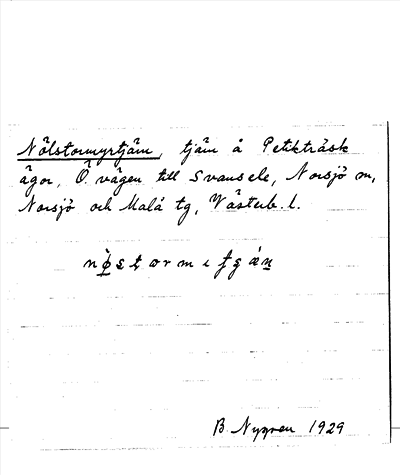 Nölstormyrtjärn, tjärn å Petikträsk
ägor, Ö. vägen till Svansele, Norsjö sn,
Norsjö och Malå tg, Västerb. l.
B. Nygren 1929